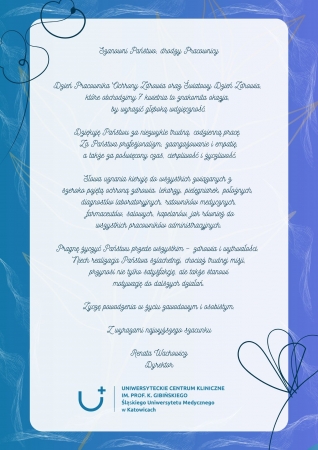 Szanowni Państwo, drodzy Pracownicy
Dzień Pracownika Ochrony Zdrowia oraz Światowy Dzień Zdrowia,
które obchodzimy 7 kwietnia to znakomita okazja,
by wyrazić głęboką wdzięczność.
Dziękuję Państwu za niezwykle trudną, codzienną pracę.
Za Państwa profesjonalizm, zaangażowanie i empatię,
a także za poświęcany czas, cierpliwość i życzliwość.
Słowa uznania kieruję do wszystkich związanych z
szeroko pojętą ochroną zdrowia: lekarzy, pielęgniarek, położnych,
diagnostów laboratoryjnych, ratowników medycznych,
farmaceutów, salowych, kapelanów jak również do
wszystkich pracowników administracyjnych.
Pragnę życzyć Państwu przede wszystkim - zdrowia i wytrwałości.
Niech realizacja Państwa szlachetnej, chociaż trudnej misji,
przynosi nie tylko satysfakcję, ale także stanowi
motywację do dalszych działań.
Życzę powodzenia w życiu zawodowym i osobistym.
Z wyrazami najwyższego szacunku
Renata Wachowicz
Dyrektor
UNIWERSYTECKIE CENTRUM KLINICZNE
IM. PROF. K. GIBIŃSKIEGO
Śląskiego Uniwersytetu Medycznego
w Katowicach